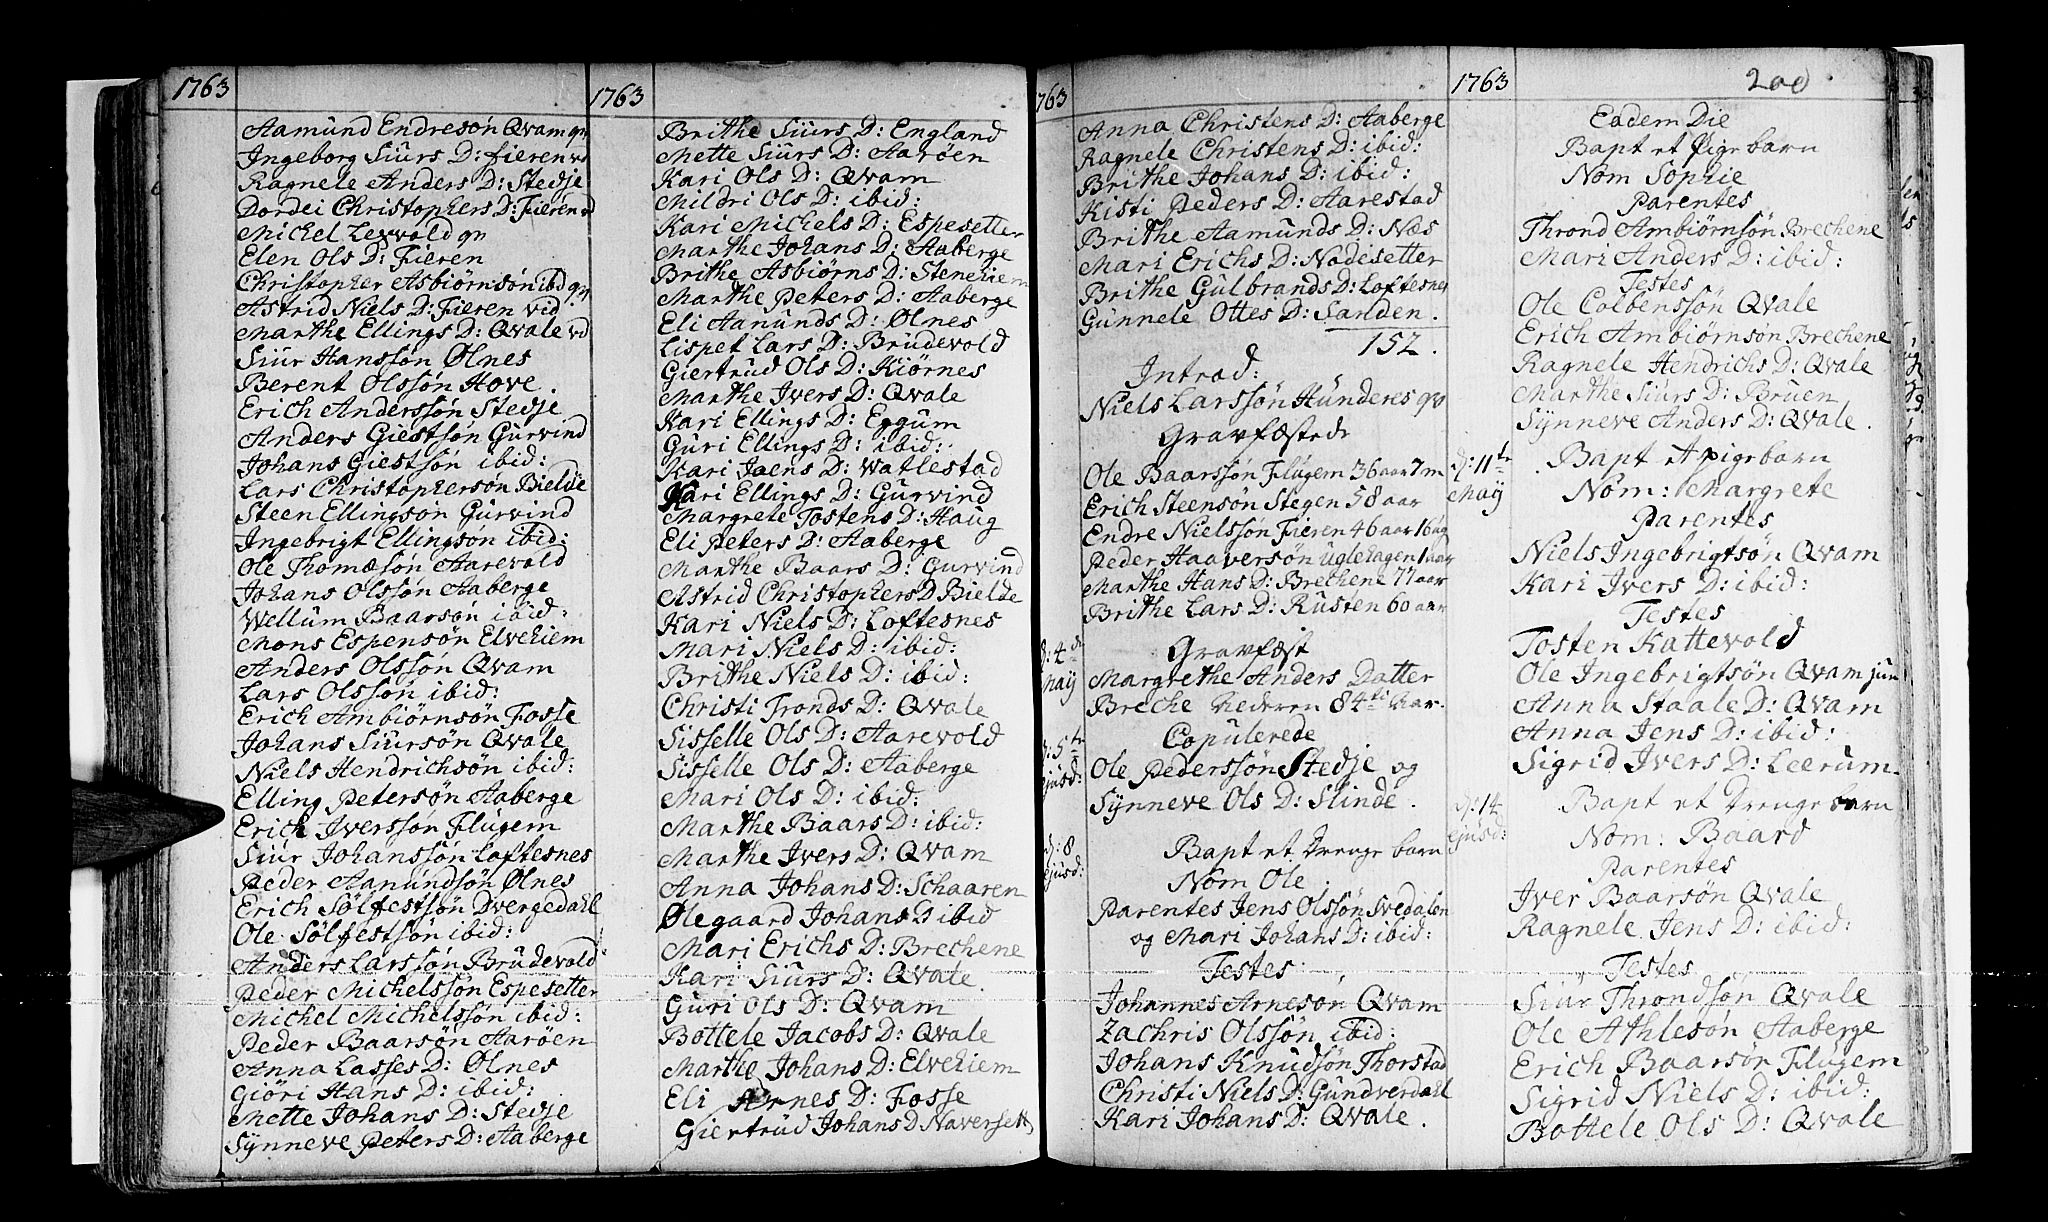 1763
Aamund Endresøn Qvam qv
Ingeborg Siurs D: Fieren vd
Ragnele Anders D: Stedje
Dordei Christophers D: Fieren vd
Michel Lexvold qv
Elen Ols D: Fieren
Christopher Asbiørnsøn ibd qv
Astrid Niels D: Fieren vid
Marthe Ellings D: Qvale vd
Siur Hanssøn Ølnes
Berent Olssøn Hove.
Erich Anderssøn Stedje
Anders Giestsøn Gurvind
Johans Giestsøn ibid:
Lars Christophersøn Bielde
Steen Ellingson Gurvind
Ingebrigt Ellingson ibid:
Ole Thomæsøn Aarevold
Johans Olssøn Aaberge
Wellum Baarsøn ibid:
Mons Espensøn Elvekiem
Anders Olssøn Qvam
Lars Olssøn ibid:
Erich Ambiørnsøn Fosse
Johans Siursøn Qvale
Niels Hendrichsøn ibid:
Elling Petersøn Aaberge
Erich Iverssøn Flugem
Siur Johanssøn Loftesnes
Peder Aamundsøn Ølnes
Erich Sølfestsøn Dvergedahl
Ole Sølfestsøn ibid:
Anders Larssøn Brudevold
Peder Michelssøn Espesetter
Michel Michelssøn ibid:
Peder Baarsøn Aarøen
Anna Lasses D: Ølnes
Giøri Hans D: ibid:
Mette Johans D: Stedje
Synneve Peters D: Aaberge
1763
Brithe Siurs D: England
Mette Siurs D: Aarøen
Kari Ols D: Qvam
Mildri Ols D: ibid:
Kari Michels D: Espesetter
Marthe Johans D: Aaberge
Brithe Asbiørns D: Stenekiem
Marthe Peters D: Aaberge
Eli Aamunds D: Ølnes
Lispet Lars D: Brudevold
Giertrud Ols D: Kiørnes
Marthe Ivers D: Qvale
Kari Ellings D: Eggum
Guri Ellings D: ibid:
Kari Jaens D: Watlestad
Kari Ellings D: Gurvind
Margrete Tostens D: Haug
Eli Peters D: Aaberge
Marthe Baars D: Gurvind
Astrid Christophers D Bielde
Kari Niels D: Loftesnes
Mari Niels D: ibid:
Brithe Niels D: ibid:
Christi Tronds D: Qvale
Sisselle Ols D: Aarevold
Sisselle Ols D: Aaberge
Mari Ols D: ibid:
Marthe Baars D: ibid:
Marthe Ivers D: Qvam
Anna Johans D: Schaaren
Ølegaard Johans D ibid
Mari Erichs D: Brechene
Kari Siurs D: Qvale.
Guri Ols D: Qvam
Bottele Jacobs D: Qvale
Marthe Johans D: Elvekiem
Eli Arnes D: Fosse
Giertrud Johans D Naversett
763
Anna Christens D: Aaberge
Ragnele Christens D: ibid:
Brithe Johans D: ibid:
Kisti Peders D: Aarestad
Brithe Aamunds D: Næs
Mari Erichs D: Nødesetter
Brithe Gulbrands D: Loftesnes
Gunnele Ottes D: Sanden.
152.
Introd:
Niels Larssøn Hunderes qvo
Gravfæstede
Ole Baarssøn Flugem 36 aar 7 m
Erich Steensøn Stegen 58 aar
Endre Nielssøn Fieren 46 aar 16 ug
Peder Haaversøn Uglehagen 1 aar
Marthe Hans D: Brechene 77 aar
Brithe Lars D: Rusten 60 aar
d: 4de Gravfæst
Maij Margrethe Anders Datter
Breche Nederen 84ti Aar.
d: 5te Copulerede
Ole Pederssøn Stedje og
ejusd: Synneve Ols D: Slinde.
d: 8 Bapt et Drenge barn
ejusd: Nom Ole.
Parentes Jens Olssøn Svedalen
og Mari Johans D: ibid:
Testes
Johannes Arnesøn Qvam
Zachris Olssøn ibid:
Johans Knudsøn Thorstad
Christi Niels D: Gundverdahl
Kari Johans D: Qvale.
1763 200
Eadem Die
Bapt et Pige barn
Nom Sophie
Parentes
Thrond Ambiørnsøn Brechene
Mari Anders D: ibid:
Testes
Ole Colbenssøn Qvale
Erich Ambiørnsøn Brechene
Ragnele Hendrichs D: Qvale
Marthe Siurs D: Bruen
Synneve Anders D: Qvale.
d: 11te Bapt et pigebarn
Maij Nom: Margrete
Parentes
Niels Ingebrigtsøn Qvam
Kari Ivers D: ibid:
Testes
Tosten Kattevold
Ole Ingebrigtsøn Qvam jun
Anna Staale D: Qvam
Anna Jens D: ibid:
Sigrid Ivers D: Leerum.
d: 14 Bapt et Drenge barn
ejusd: Nom: Baard
Parentes
Iver Baarsøn Qvale
Ragnele Jens D: ibid:
Testes
Siur Throndsøn Qvale
Ole Athlesøn Aaberge
Erich Baarsøn Flugem
Sigrid Niels D: ibid:
Bottele Ols D: Qvale